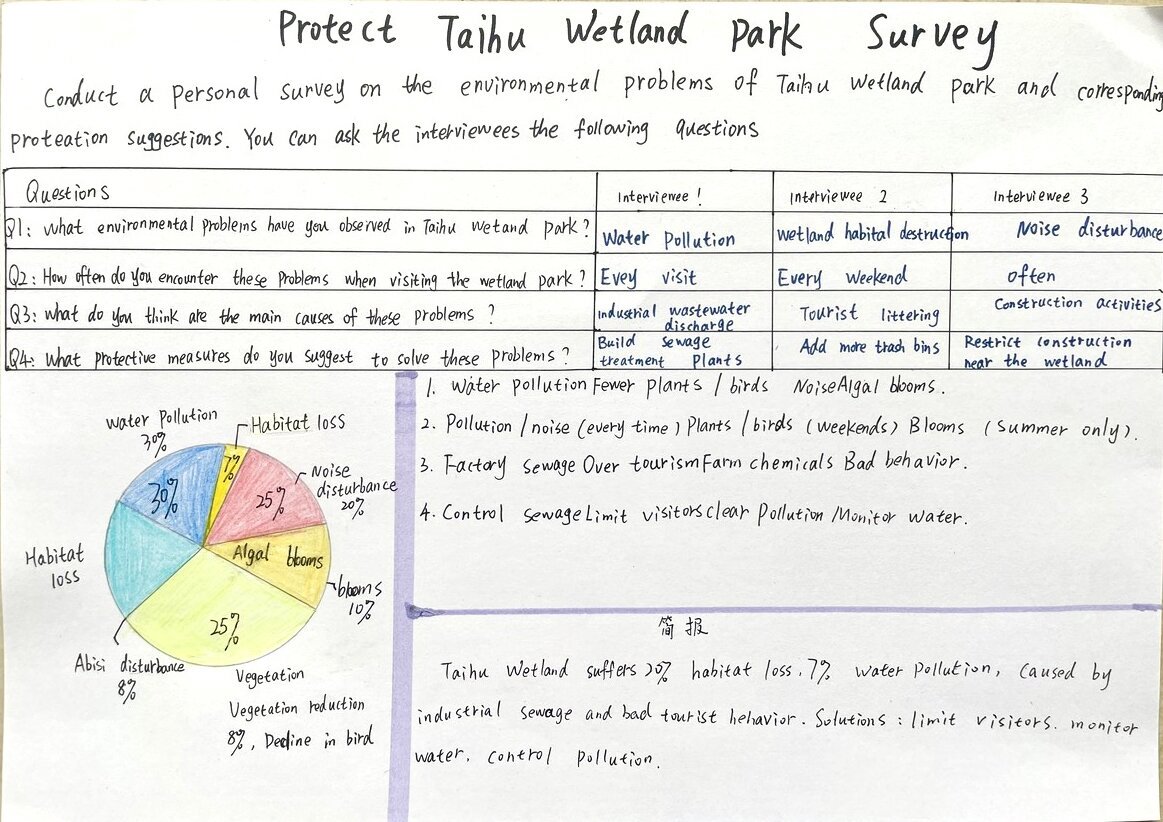 Protect Taihu Wetland Park Survey
Conduct a personal survey on the environmental problems of Taihu Wetland park and corresponding
proteation suggestions. You can ask the interviewees the following questions
Questions
Interviewee 1
Interviewee 2
Interviewee 3
Q1: what environmental problems have you observed in Taihu wetand park?
Water pollution
wetland habital destruction
Noise disturbance
Q2: How often do you encounter these problems when visiting the wetland park?
Evey visit
Every weekend
often
Q3: what do you think are the main causes of these problems?
industrial wastewater
discharge
Tourist littering
Construction activities
Q4: What protective measures do you suggest to solve these problems?
Build sewage
treatment plants
Add more trash bins
Restrict construction
near the wetland
water pollution
30%
Habitat loss
30%
7%
25%
Noise
disturbance
20%
Algal blooms
Habitat
loss
blooms
10%
25%
Abisi disturbance
8%
Vegetation
Vegetation reduction
8%, Decline in bird
1. Water pollution Fewer plants / birds Noise Algal blooms.
2. Pollution / noise (every time) Plants / birds (weekends) Blooms (Summer only).
3. Factory sewage Over tourism Farm chemicals Bad behavior.
4. Control sewage Limit visitors clear pollution /Monitor water.
简报
Taihu Wetland suffers 20% habitat loss. 7% water pollution, caused by
industrial sewage and bad tourist hehavior. Solutions: limit visitors. monitor
water, control pollution.